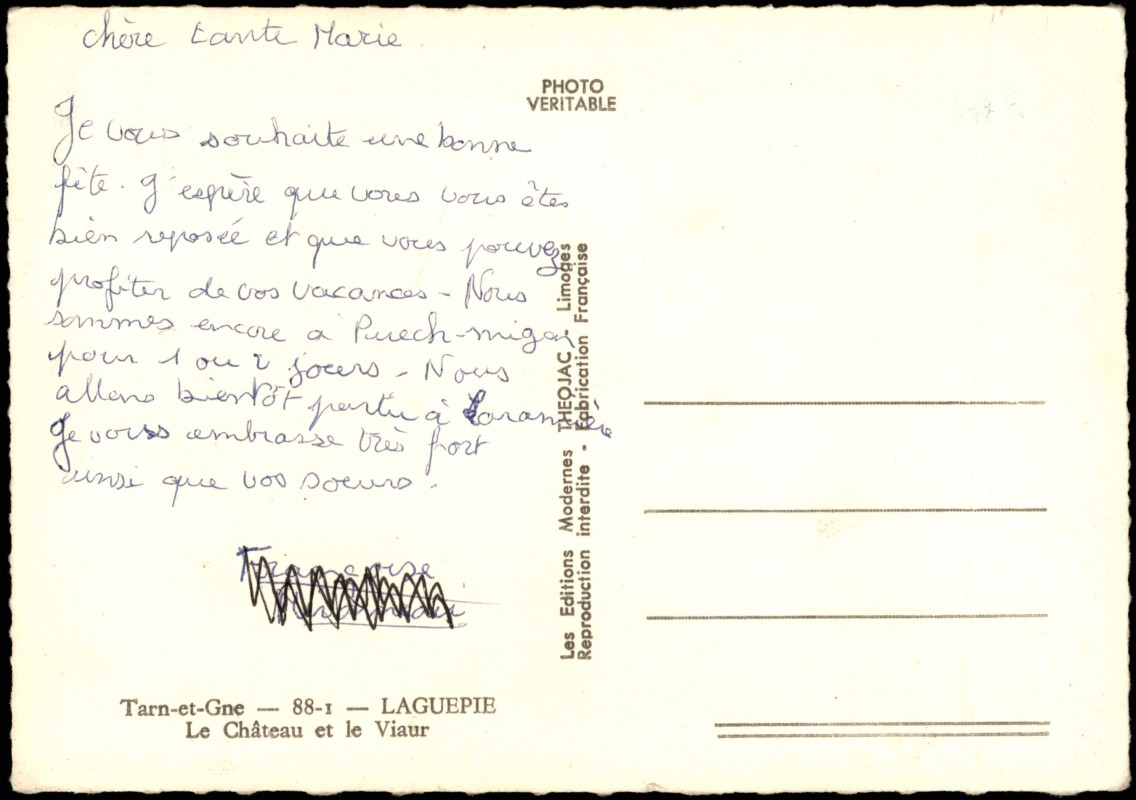 chère tante Marie
Je vous souhaite une bonne
fête. J'espère que vous vous êtes
bien reposée et que vous pouvez
profiter de vos vacances - Nous
sommes encore à Puech-migon
pour 1 ou 2 jours - Nous
allons bientôt partir à
Je vous embrasse très fort
ainsi que vos soeurs.
Françoise
Tarn-et-Gne — 88-1 — LAGUEPIE
Le Château et le Viaur
PHOTO
VERITABLE
Les Editions Modernes THEOJAC - Limoges
Reproduction interdite - Fabrication Française